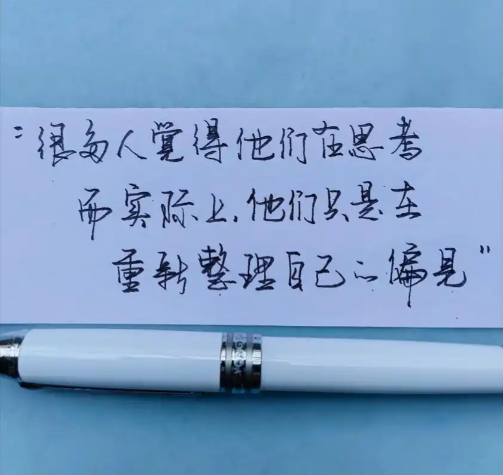 "很多人覺得他们在思考
而实际上,他们只是在
重新整理自己的偏見"